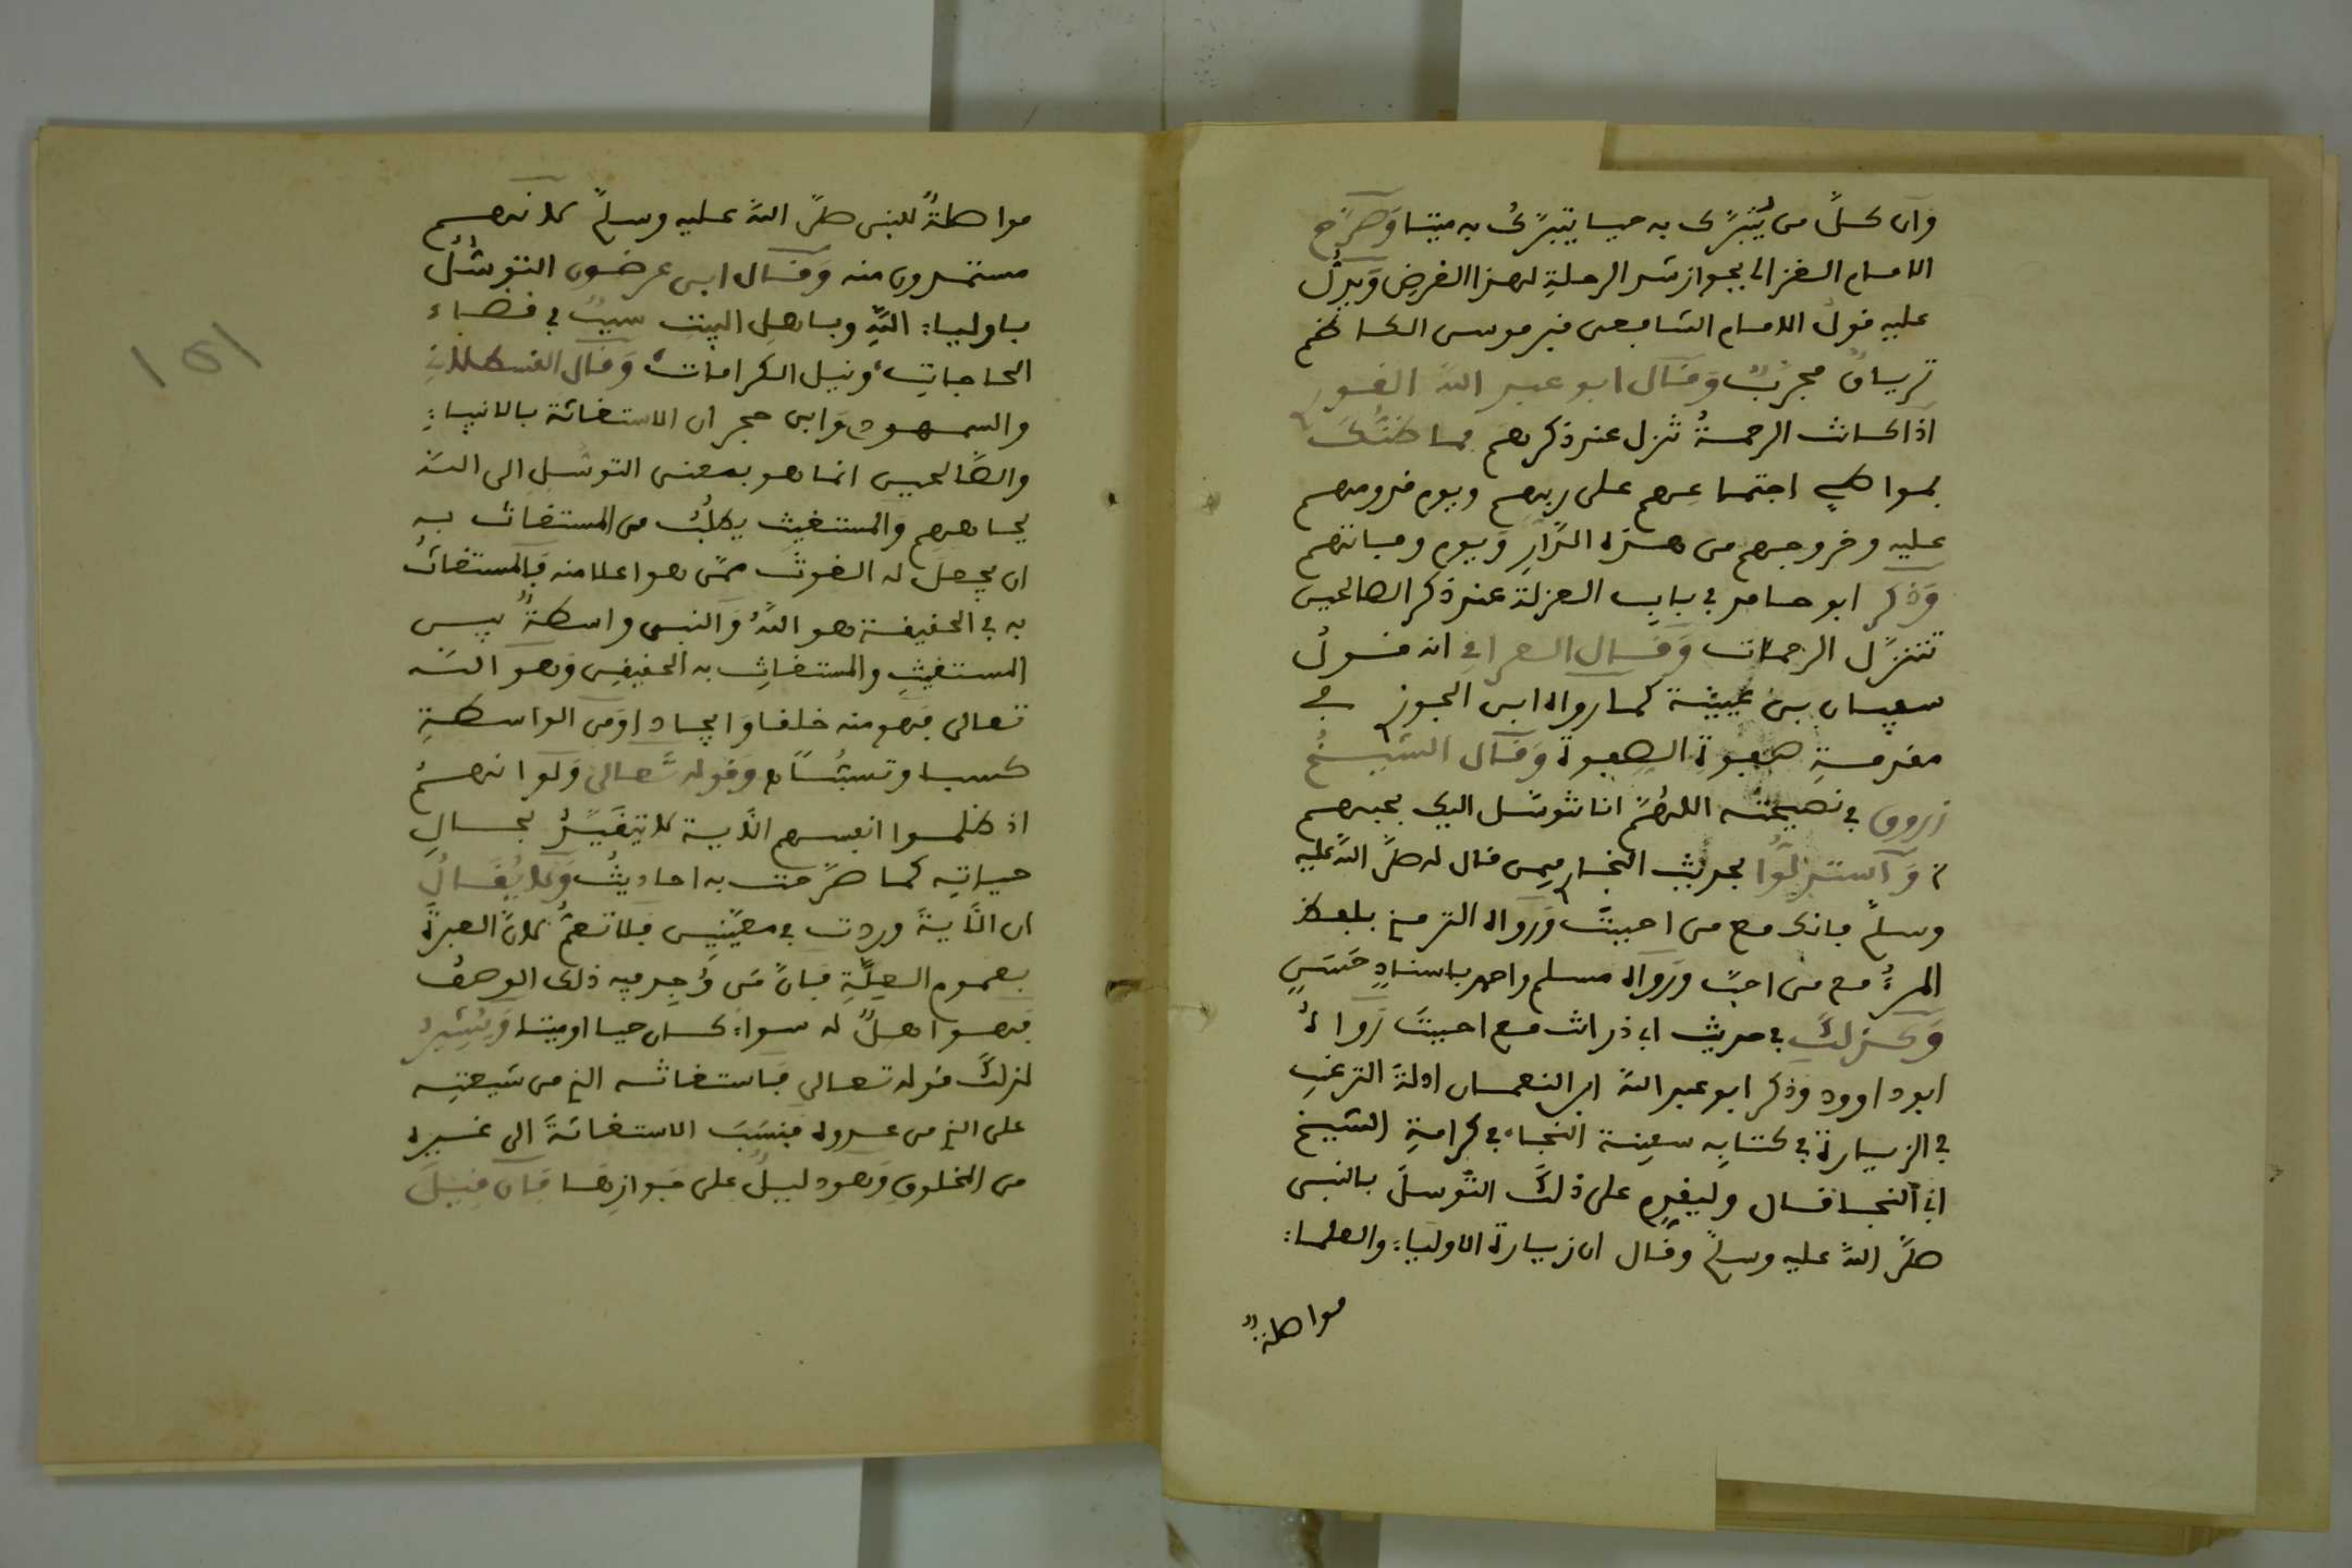 وان كلّ من يُتبرّك به حيا يتبرّك به ميتا وَصَرّح
الامام الغزالي بجواز شد الرحلةِ لهذا الغرضِ وَيدلّ
عليه قول الامام الشافعي قبر موسى الكاظم
ترياقٌ مجرّبٌ وَقال ابو عبد اللّه القوري
اذا كانت الرحمةُ تنزل عند ذكرهم فما ظنّكَ
بمواطنِ اجتماعِهم على ربهم ويوم قدومهم
عليه وخروجهم من هذه الدّارِ وَيوم وفاتهم
وَذكر ابو حامد في بابِ العزلة عند ذكر الصالحين
تتنزّل الرحمات وَقال العراقي انه قول
سفيان بن عيينة كما رواه ابن الجوزي في
مقدمةِ صفوةِ الصفوة وَقال الشيخُ
زروق في نصيحته اللهُمّ انا نتوسّل اليك بحبهم
وَاستدلّوا بحديث البخاري فيمن قال له صلّى اللّه عليه
وسلم فانك مع من احببتَ وَرواه الترمذي بلفظ
المرءُ مع من احبّ ورَواه مسلم واحمد باسنادٍ حَسَنٍ
وَكذلكَ في حديث ابي ذر انت مع احببتَ رَواهُ
ابو داوود وَذكر ابو عبد اللّه ابن النعمان ادلةَ الترغيب
في الزيارة في كتابِه سفينة النجاء في كرامةِ الشيخ
ابي النجا قال وليقدِم على ذلكَ التّوسلَ بالنبي
صلّى اللّه عليه وسلم وقال ان زيارة الاولياءِ والعلماءِ
مواصلةٌ
مواصلةٌ للنبي صلّى اللّه عليه وسلم لانهم
مستمدون منه وَقال ابن عرضون التوسُّل
باولياءِ اللّهِ وباهلِ البيتِ سببٌ في قضاء
الحاجاتِ ونيل الكرامات وَقال القسطلاني
والسمهودي وَابن حجر ان الاستغاثة بالانبياءِ
والصّالحين انما هو بمعنى التوسّلِ الى اللّه
بجاههم وَالمستغيث يطلبُ من المستغاث به
ان يجعلَ له الغوثَ ممّن هو اعلا منه فالمستغاثُ
به في الحقيقة هو اللّهُ وَالنبي واسطةٌ بين
المستغيثِ والمستغاثِ به الحقيقي وَهو اللّه
تعالى فهو منه خلقا وَايجادا وَمن الواسطةِ
كسبا وتسبّباً وَقوله تعالى وَلوا نهمُ
اذ ظلموا انفسهم الَاية لا يتقيّدُ بحالِ
حياتِه كما صرّحت به احاديثُ وَلا يُقَالُ
ان الَايةَ وردت في معيّنِين فلا تعمّ لانّ العبرةَ
بعموم العِلّةِ فانّ مَن وُجِد فيه ذلك الوصفُ
فهو اهلٌ له سواء كان حيا او ميتا وَيُشيرُ
لذلكَ قوله تعالى فاستغاثه الذي من شيعتِه
على الذي من عدوه فنَسَبَ الاستغاثةَ الى غيره
من المخلوقِ وَهو دليلٌ على جوازِها فَان قيلَ
١٥١